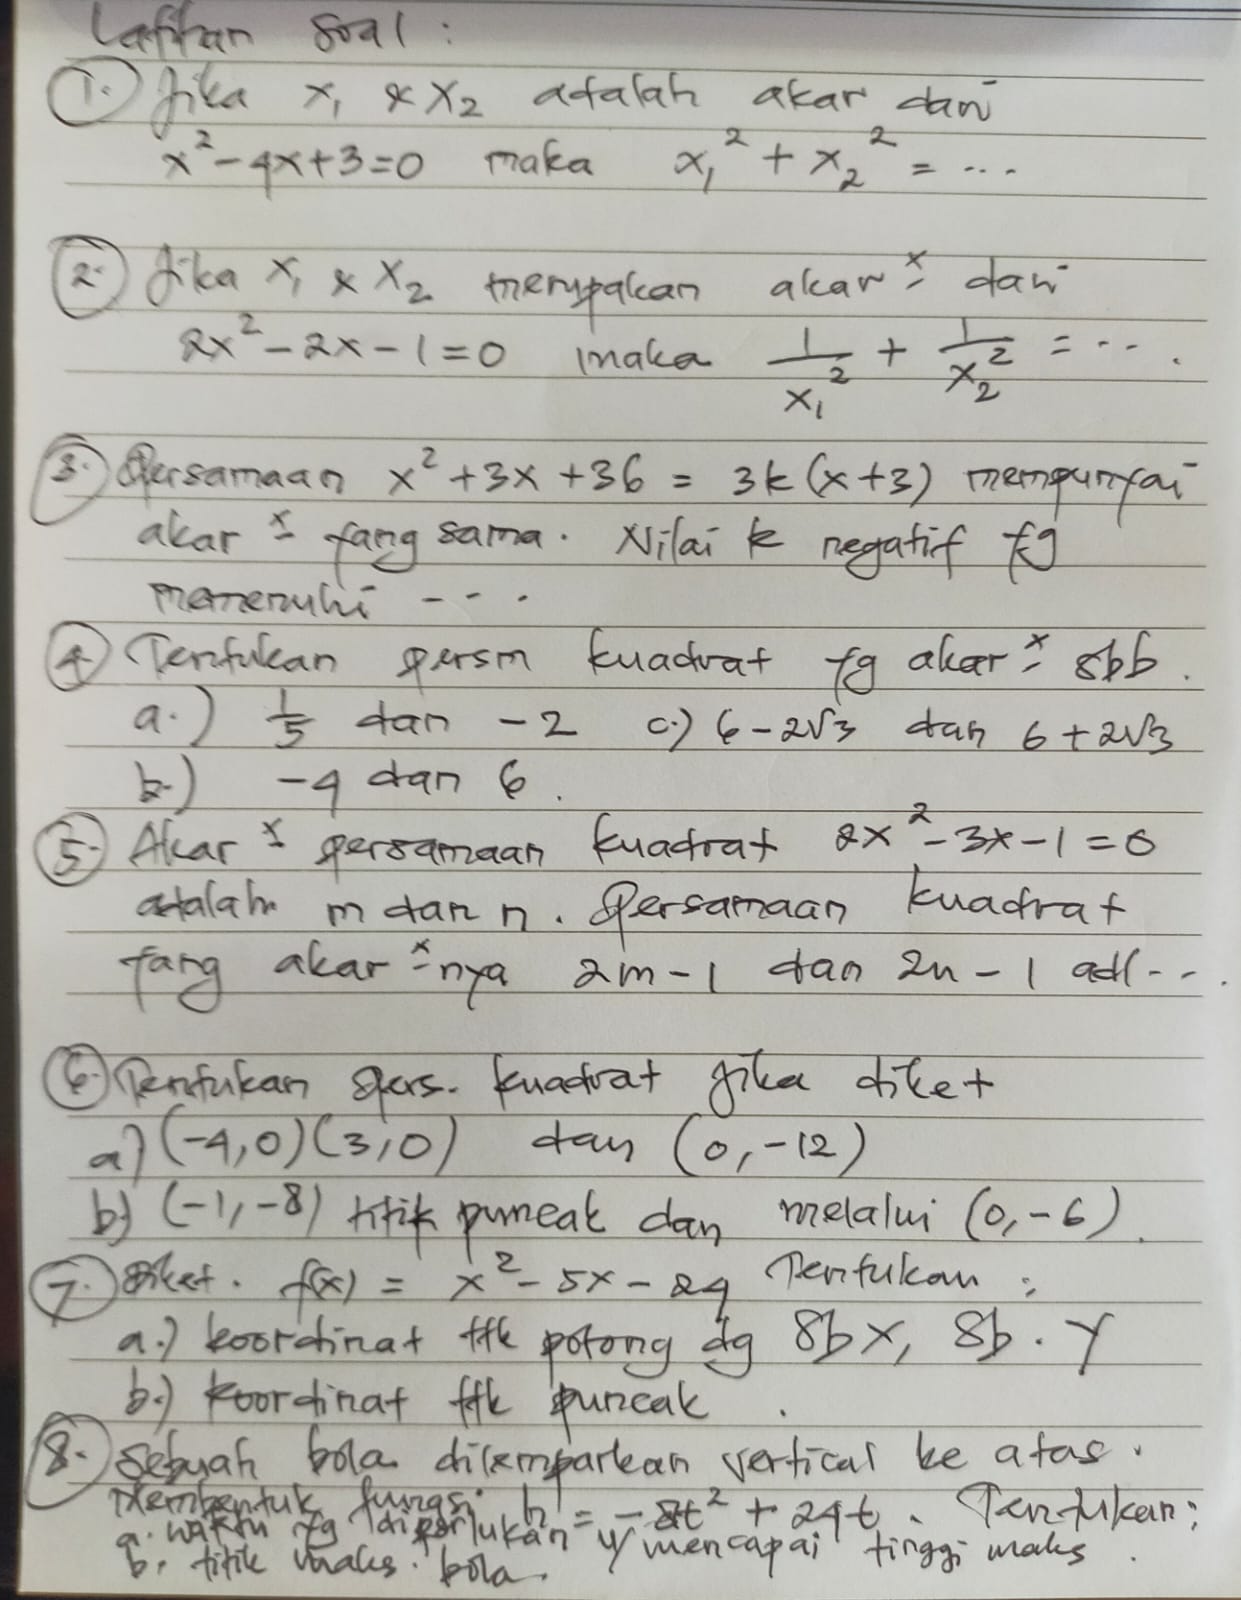 Latihan soal :
1. Jika x₁ & x₂ adalah akar dari
x² - 4x + 3 = 0 maka x₁² + x₂² = ...
2. Jika x₁ & x₂ merupakan akar² dari
2x² - 2x - 1 = 0 maka 1/x₁² + 1/x₂² = ...
3. Persamaan x² + 3x + 36 = 3k (x+3) mempunyai
akar² yang sama. Nilai k negatif yg
memenuhi ---.
4. Tentukan persm kuadrat yg akar² sbb.
a.) 1/5 dan -2 c.) 6 - 2√3 dan 6 + 2√3
b.) -4 dan 6.
5. Akar² persamaan kuadrat 2x² - 3x - 1 = 0
adalah m dan n. Persamaan kuadrat
yang akar²nya 2m - 1 dan 2n - 1 adl ---.
6. Tentukan pers. kuadrat jika diket
a) (-4,0) (3,0) dan (0,-12)
b) (-1,-8) titik puncak dan melalui (0,-6).
7. Diket. f(x) = x² - 5x - 24 Tentukan :
a.) koordinat ttk potong dg Sb X, Sb. Y
b.) koordinat ttk puncak.
8. Sebuah bola dilemparkan vertical ke atas.
Membentuk fungsi h = -8t² + 24t. Tentukan :
a. waktu yg diperlukan u/ mencapai tinggi maks.
b. titik maks. bola.